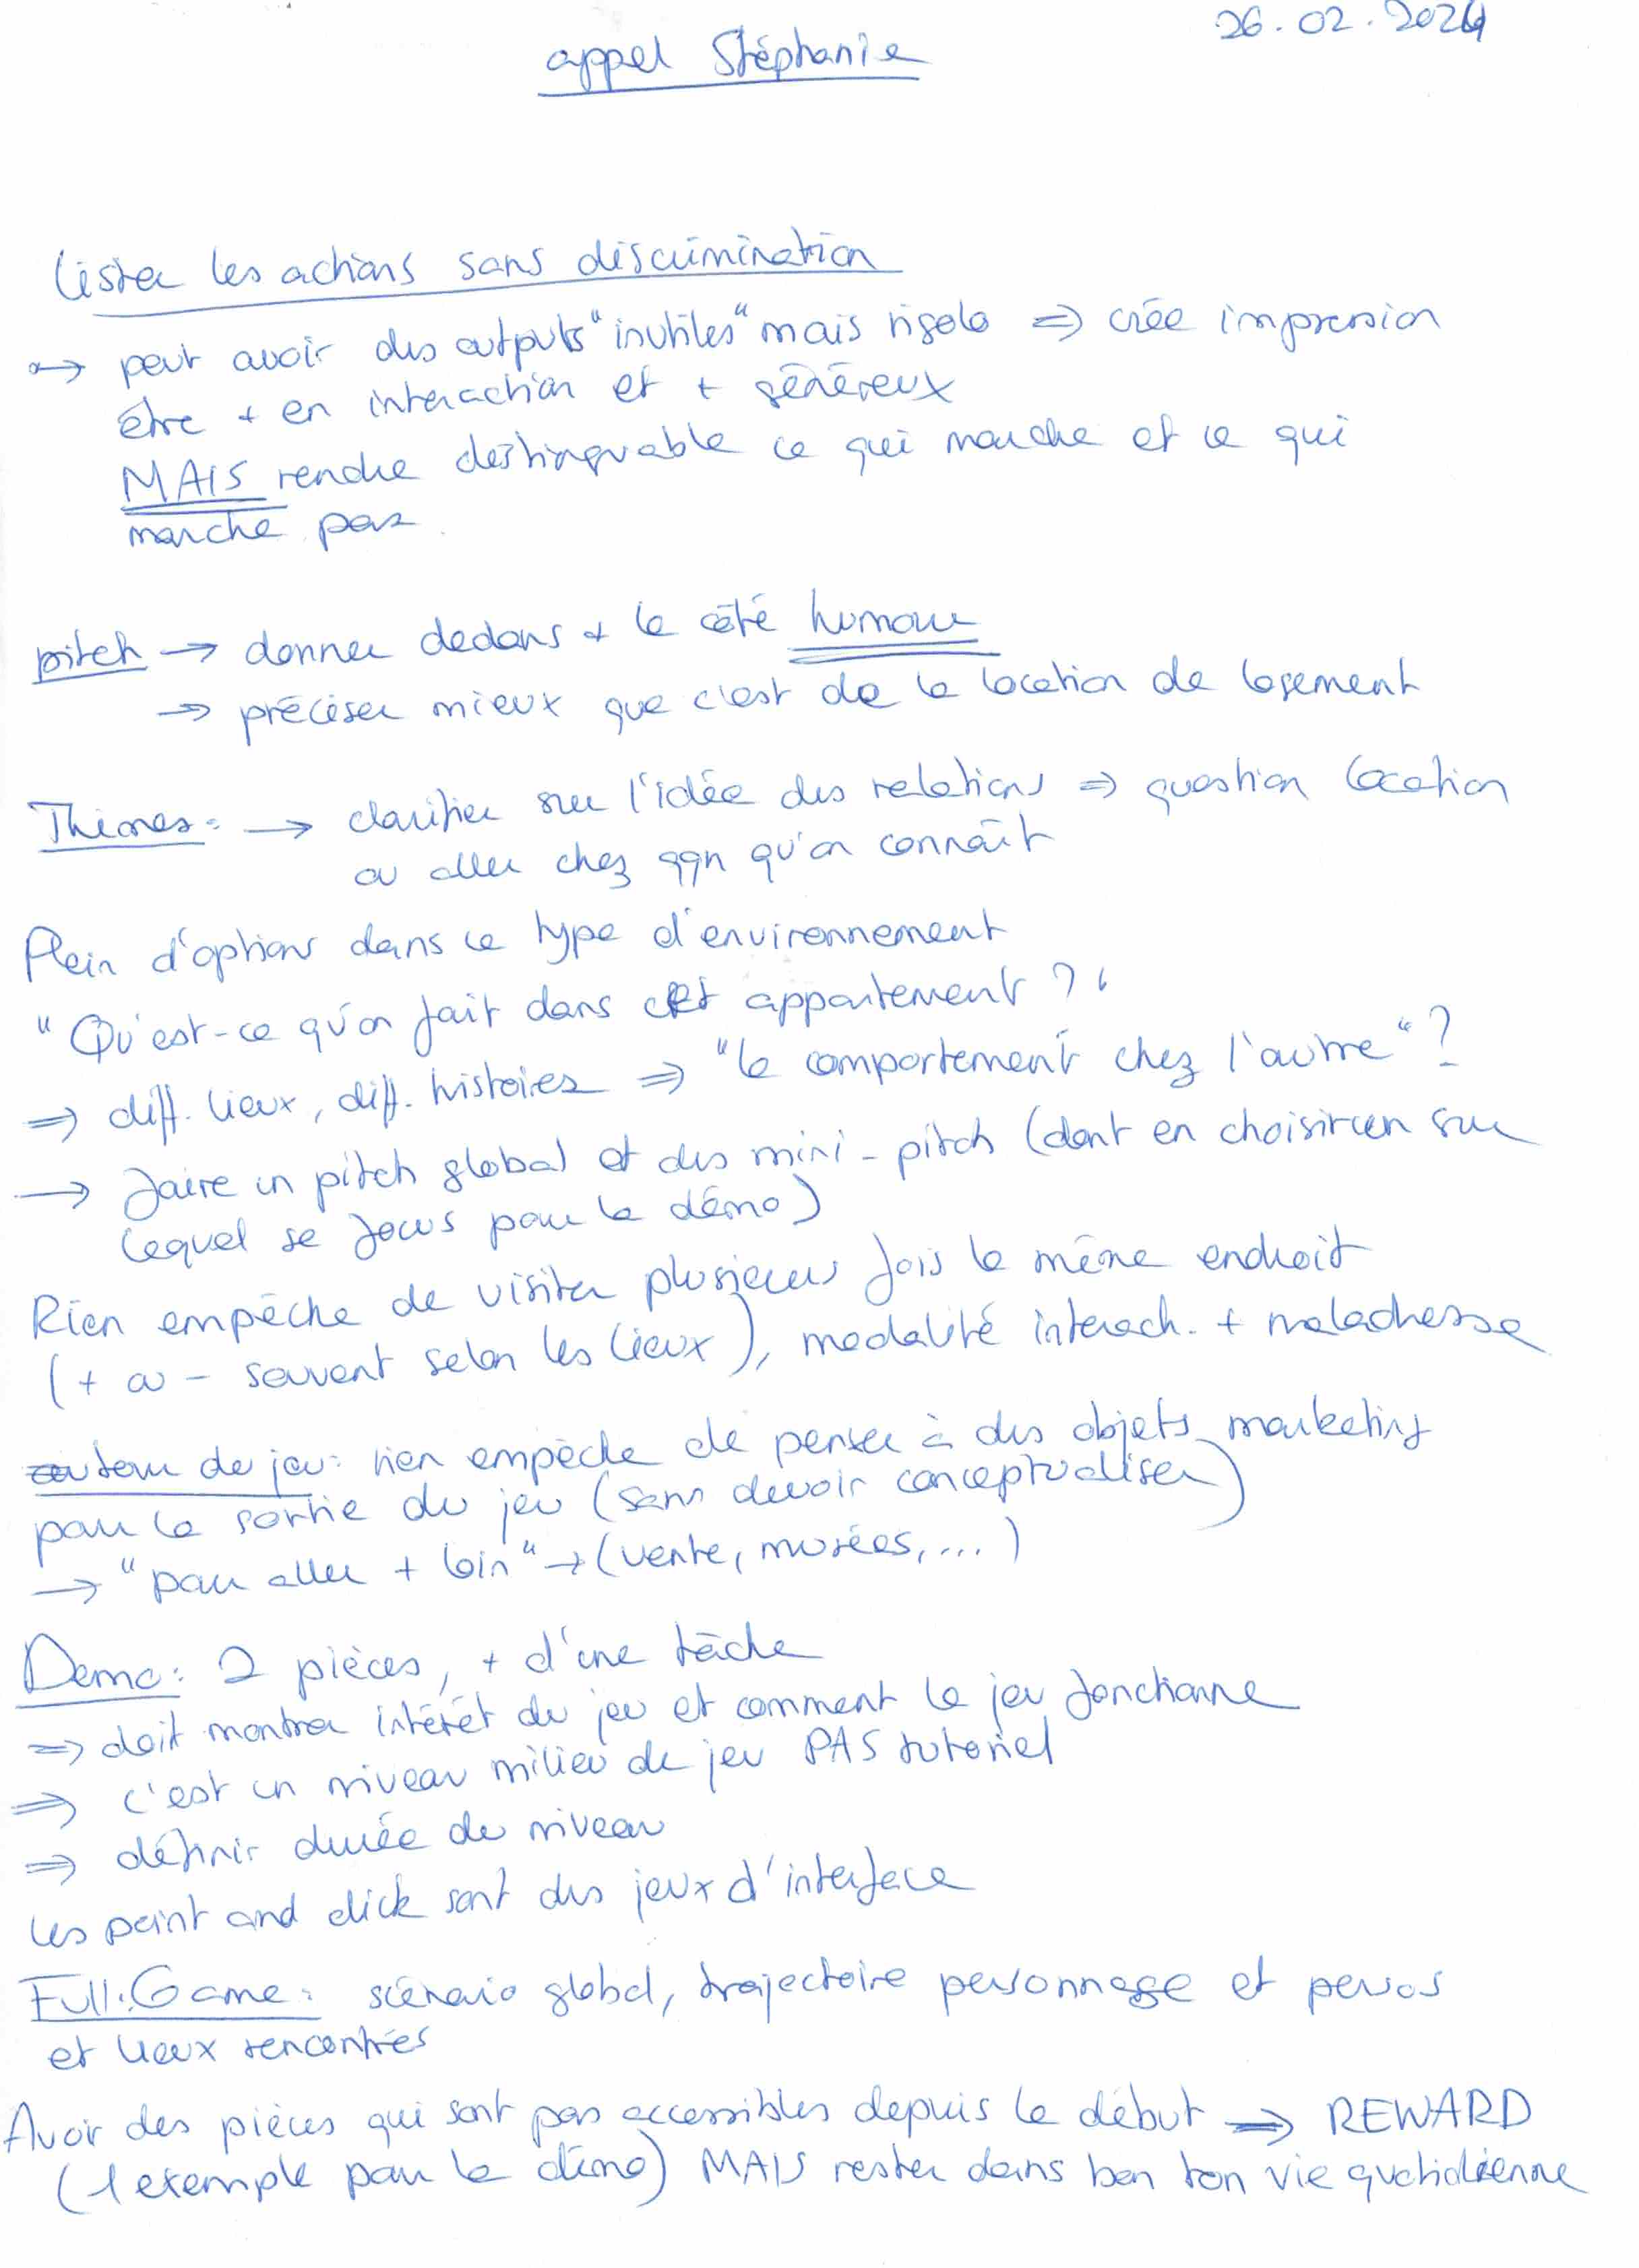 26.02.2024
appel Stéphanie
Lister les actions sans discrimination
→ peut avoir des outputs "inutiles" mais rigolo => crée impression
être + en interaction et + généreux
MAIS rendre distinguable ce qui marche et ce qui
marche pas
pitch → donner dedans + le côté humour
→ préciser mieux que c'est de la location de logement
Thèmes: → clarifier sur l'idée des relations => question location
ou aller chez qqn qu'on connaît
Plein d'options dans ce type d'environnement
"Qu'est-ce qu'on fait dans cet appartement ?"
=> diff. lieux, diff. histoires => "le comportement chez l'autre" ?
→ faire un pitch global et des mini-pitch (dont en choisir un sur
lequel se focus pour la démo)
Rien empêche de visiter plusieurs fois le même endroit
(+ ou - souvent selon les lieux), modalité interach. + maladresse
autour de jeu: rien empêche de penser à des objets marketing
pour la sortie du jeu (sans devoir conceptualiser)
→ "pour aller + loin" → (vente, musées, ...)
Demo: 2 pièces, + d'une tâche
=> doit montrer intérêt du jeu et comment le jeu fonctionne
=> c'est un niveau milieu de jeu PAS tutoriel
=> définir durée du niveau
Les point and click sont des jeux d'interface
Full Game: scénario global, trajectoire personnage et persos
et lieux rencontrés
Avoir des pièces qui sont pas accessibles depuis le début => REWARD
(1 exemple pour la démo) MAIS rester dans bon ton vie quotidienne